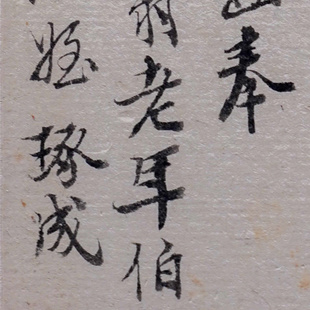 奉
翁老年伯
姪琢成